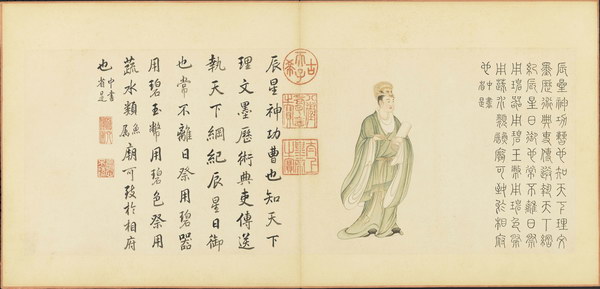 辰星神功曹也知天下理文
墨歷術典吏傳送執天下綱
紀辰星日御也常不離日祭
用碧器用碧玉幣用碧色祭
用蔬水類魚屬廟可致於相府
也中書省是
古希天子
辰星神功曹也知天下
理文墨歷術典吏傳送
執天下綱紀辰星日御
也常不離日祭用碧器
用碧玉幣用碧色祭用
蔬水類魚屬廟可致於相府
也中書省是